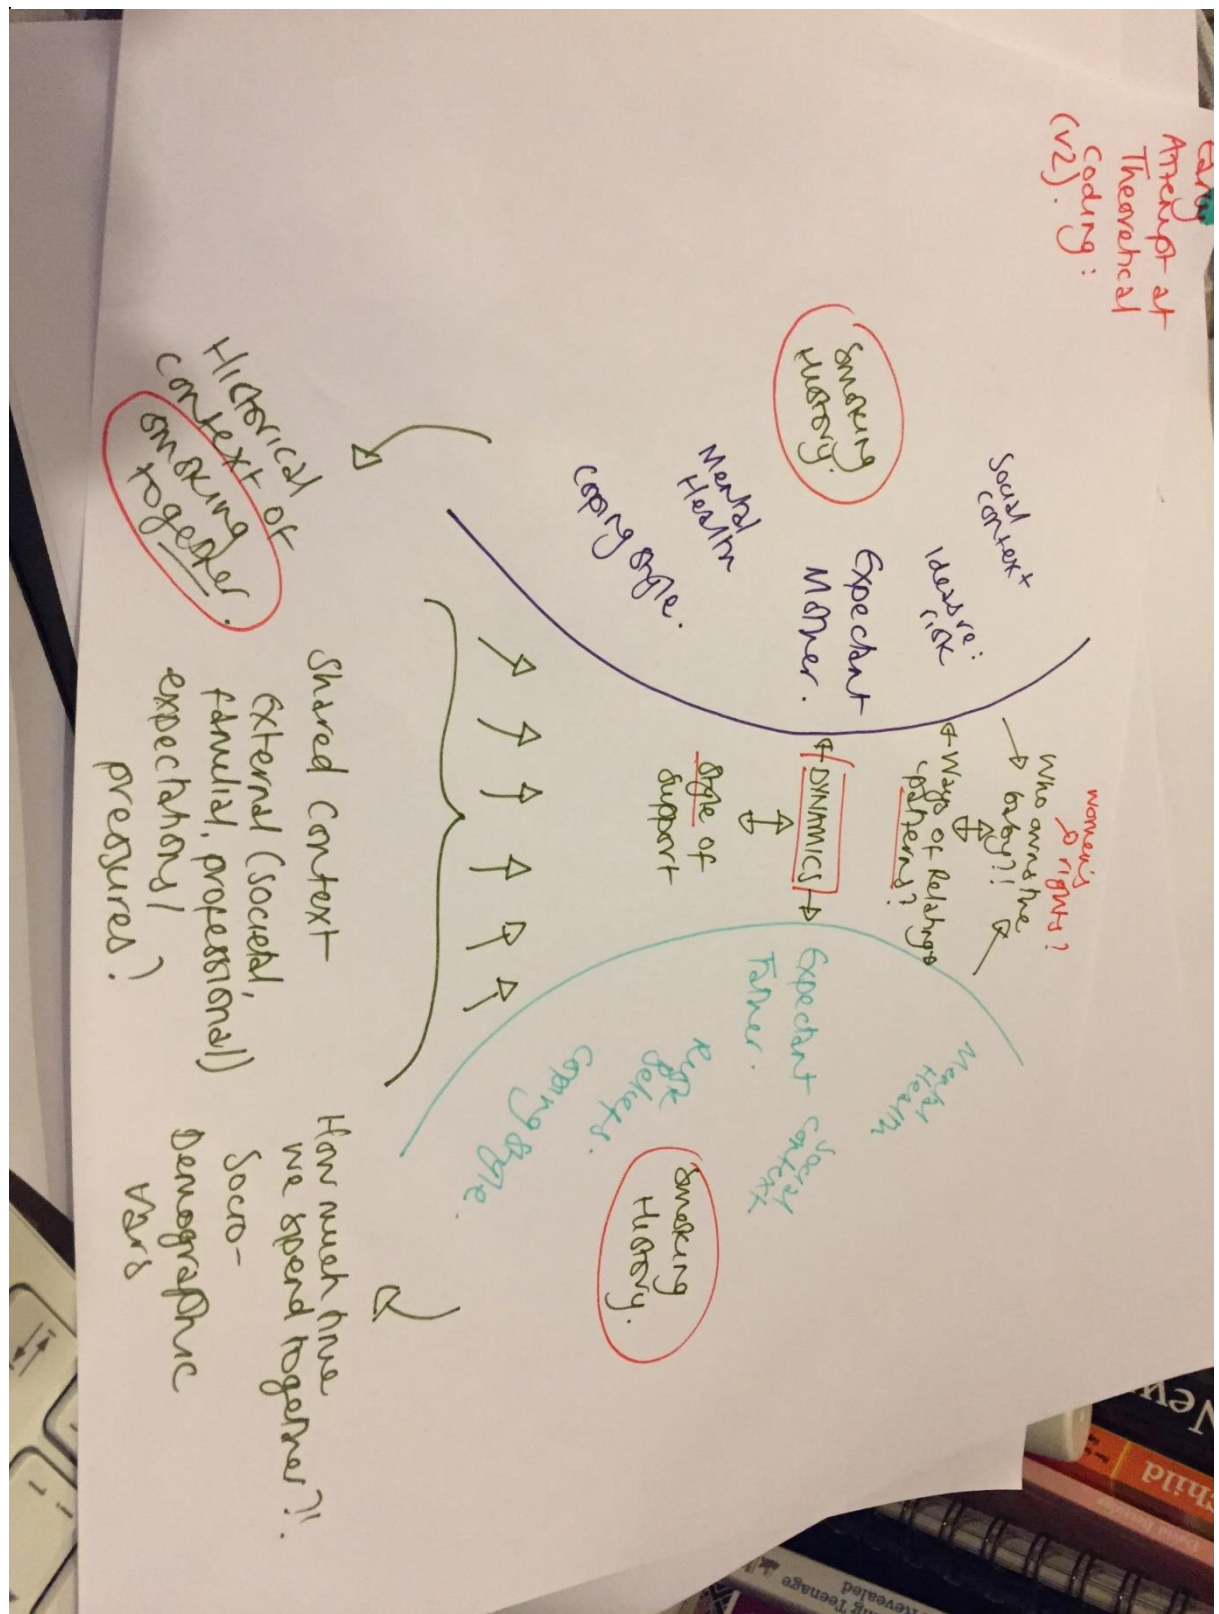 Early
Attempt at
Theoretical
Coding:
(v2).
Social
context
Ideas re:
risk
Smoking
History.
Expectant
Mother.
Mental
Health
Coping style.
women's
rights?
Who owns the
baby?!
Ways of Relating
patterns?
DYNAMICS
Style of
support
Mental
Health
Expectant
Father.
Social
context
Risk
Beliefs.
Coping style.
Smoking
History.
Historical
context of
smoking
together.
Shared Context
External (societal,
familial, professional)
expectations/
pressures?
How much time
we spend together?!!
Socio-
Demographic
vars
New
child
Teenage
Revealed